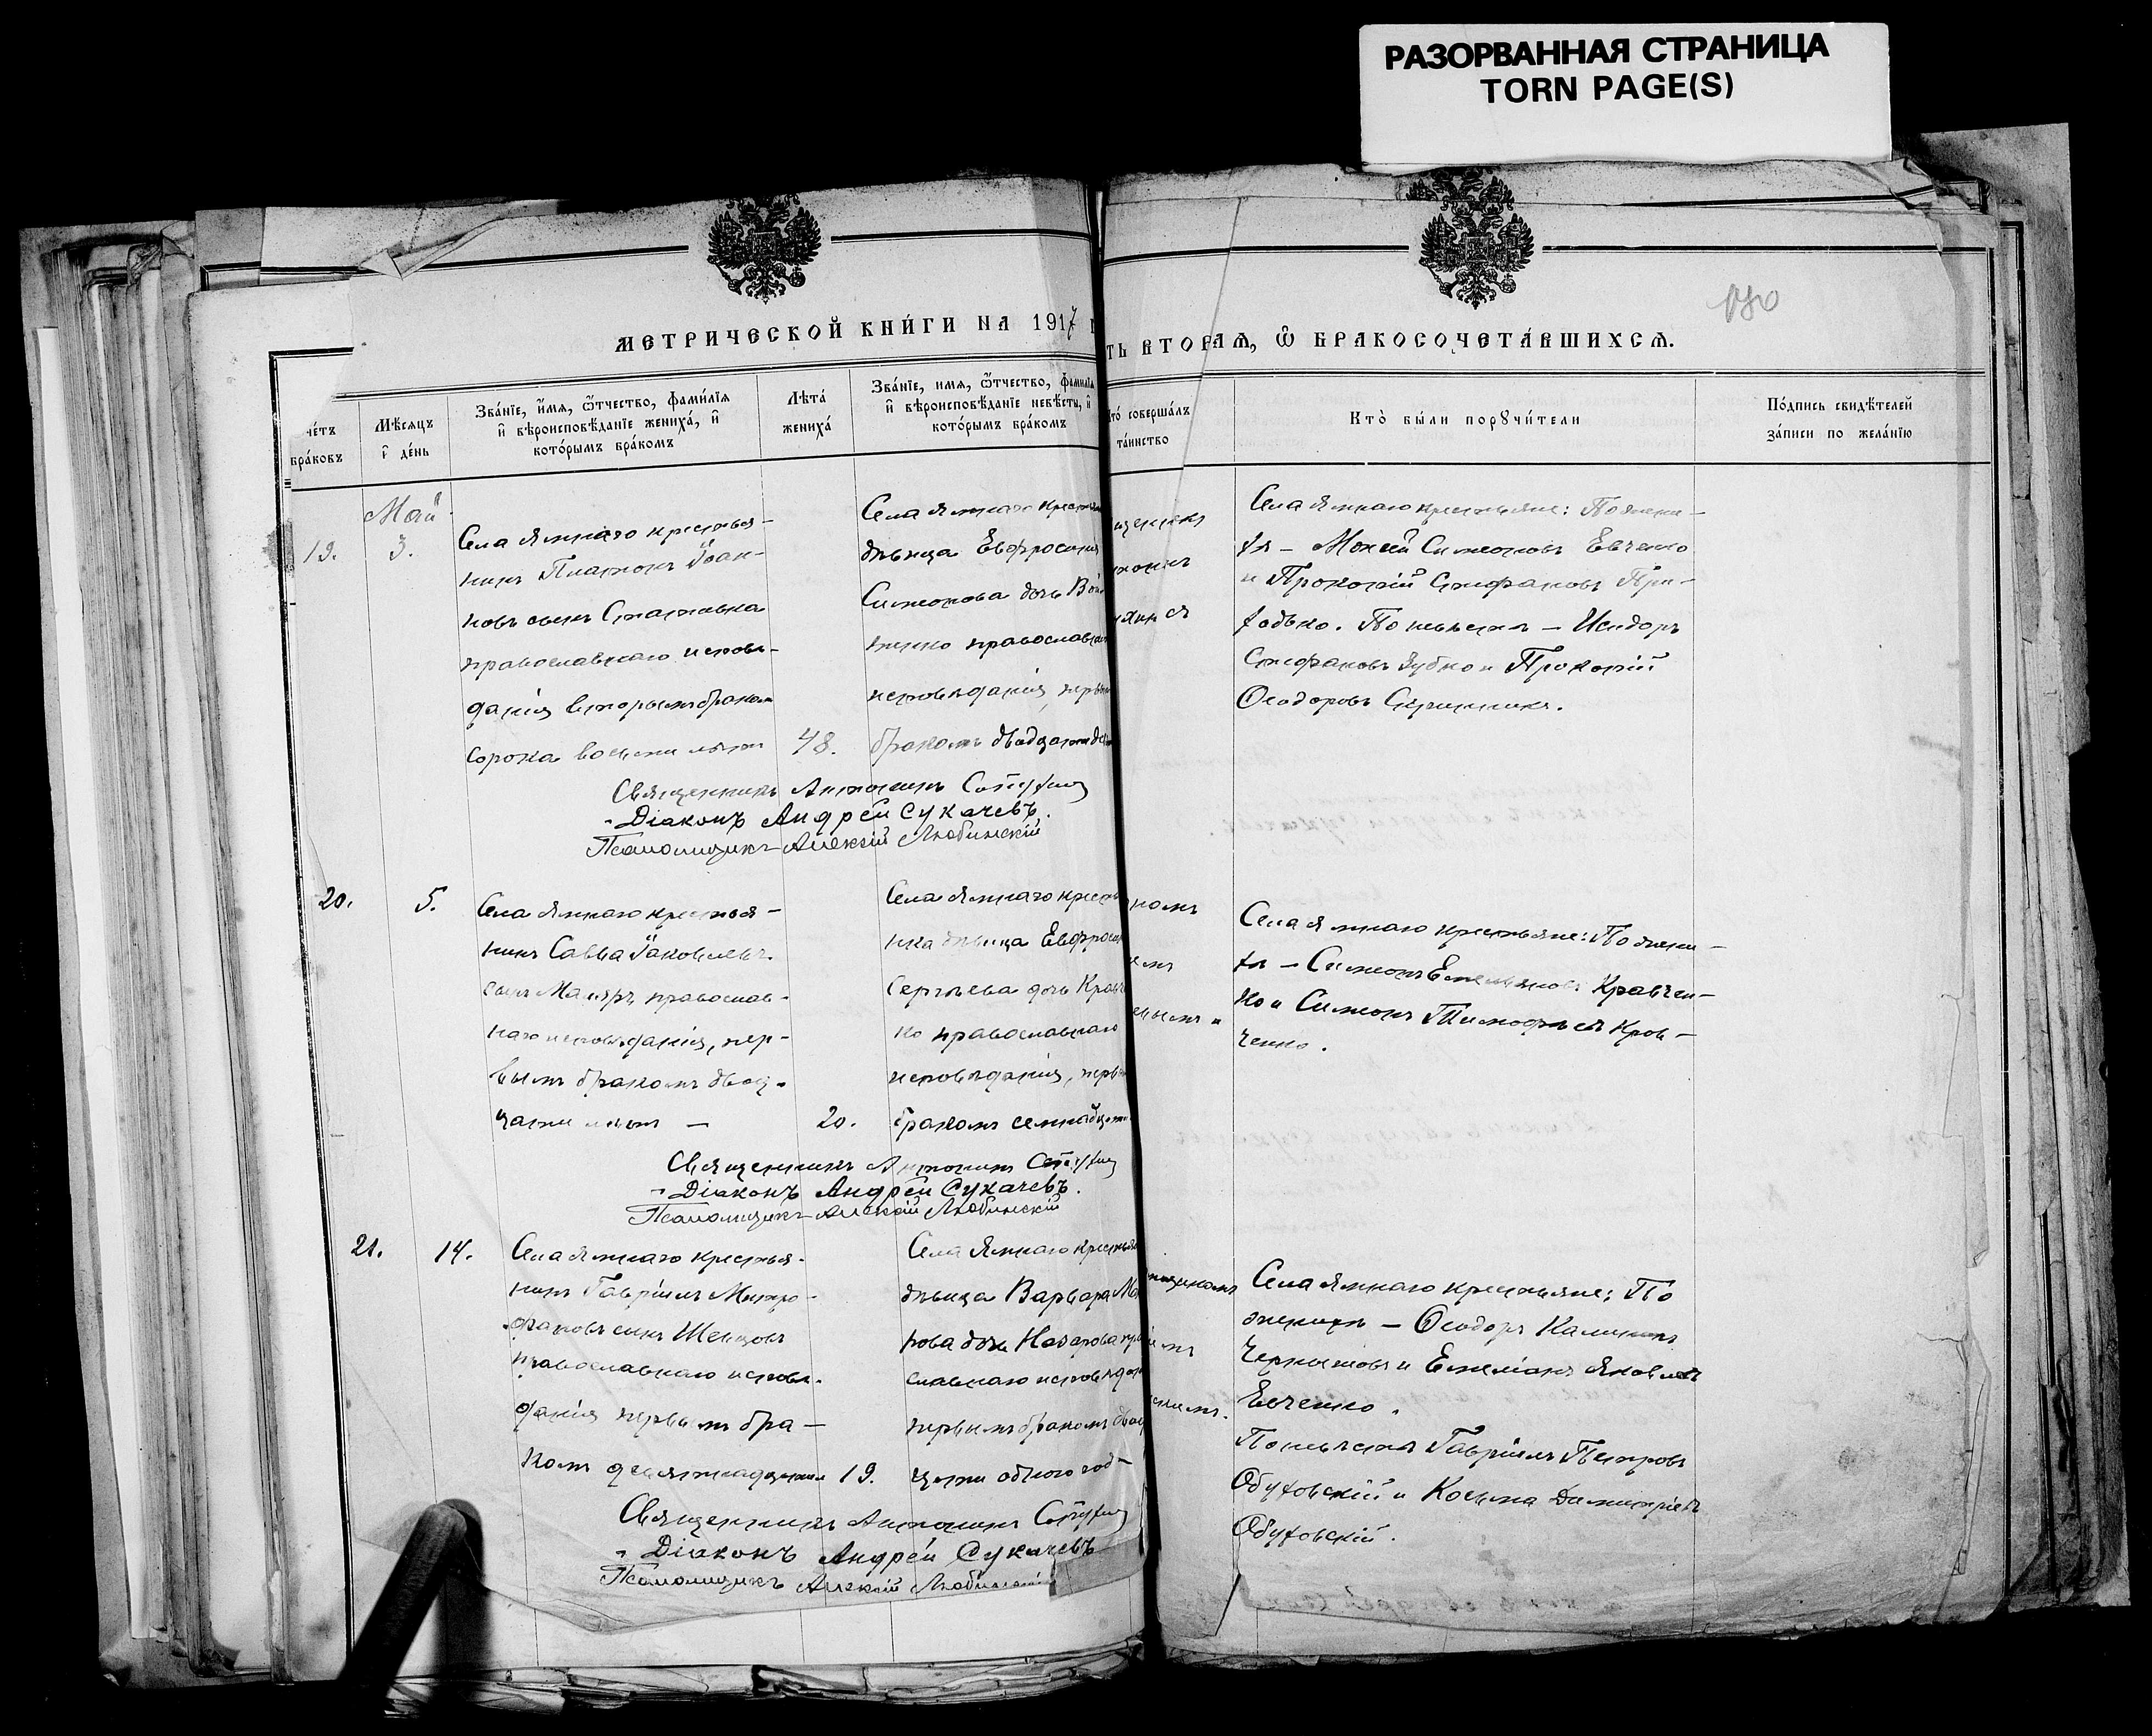 РАЗОРВАННАЯ СТРАНИЦА
TORN PAGE(S)
МЕТРИЧЕСКОЙ КНИ́ГИ НА 1917
ТЬ ВТОРАѦ, Ѿ БРАКОСОЧЕТА́ВШИХСѦ.
чéтъ бра́ковъ
Мѣ́сяцъ и де́нь
Зва́нїе, и́мѧ, ѻ҆́тчество, фами́лїѧ и҆ вѣроисповѣ́данїе жениха́, и҆ кото́рымъ бра́комъ
Лѣта́ жениха́
Зва́нїе, имѧ, ѻ҆́тчество, фамилїѧ и҆ вѣроисповѣ́данїе невѣ́сты, и҆ кото́рымъ бра́комъ
то́ соверша́лъ та́инство
Кто̀ бы́ли порꙋчи́тели
По́дпись свидѣ́телей за́писи по жела́нїю
Май
19.
3.
Села Ямнаго крестья-
нинъ Платонъ Іоан-
новъ сынъ
православнаго исповѣ-
данія вторымъ бракомъ
сорока восьми лѣтъ
48.
Села Ямнаго
дѣвица Евфросинія
Симеонова дочь
православна
исповѣданія, первы
бракомъ двадцати
Села Ямнаго крестьяне: По жени-
хѣ – Моисей Симеоновъ Евченко
и Прокопій Стефановъ При-
ходько. По невѣстѣ – Исидоръ
Стефановъ Зубко и Прокопій
Ѳеодоровъ
Священникъ Антонинъ
Діаконъ Андрей Сукачевъ.
Псаломщикъ Алексій Любинскій
20.
5.
Села Ямнаго крестья-
нинъ Савва Іаковлевъ
сынъ Маляръ православ-
наго исповѣданія, пер-
вымъ бракомъ двад-
цати лѣтъ –
20.
Села Ямнаго кресть
нка дѣвица Евфроси
Сергѣева дочь Кравч
ко православнаго
исповѣданія, первы
бракомъ семнадцати
номъ
Села Ямнаго крестьяне: По жени-
хѣ – Симеонъ Емельяновъ Кравчен-
ко и Симеонъ Тимофѣевъ Крав-
ченко.
Священникъ Антонинъ
Діаконъ Андрей Сукачевъ.
Псаломщикъ Алексій Любинскій
21.
14.
Села Ямнаго крестья-
нинъ Гавріилъ Митро-
фановъ сынъ Шевцовъ
православнаго исповѣ-
данія первымъ бра-
комъ девятнадцати
19.
Села Ямнаго крестья
дѣвица Варвара Ма
рова дочь Назарова пра
славнаго исповѣдан
первымъ бракомъ двад
цати одного год-
Села Ямнаго крестьяне: По
женихѣ – Ѳеодоръ
и Емеліанъ Яковлевъ
Евченко.
По невѣстѣ Гавріилъ Петровъ
Обуховскій и Косьма Димитріевъ
Обуховскій.
Священникъ Антонинъ
Діаконъ Андрей Сукачевъ
Псаломщикъ Алексій Любинскій